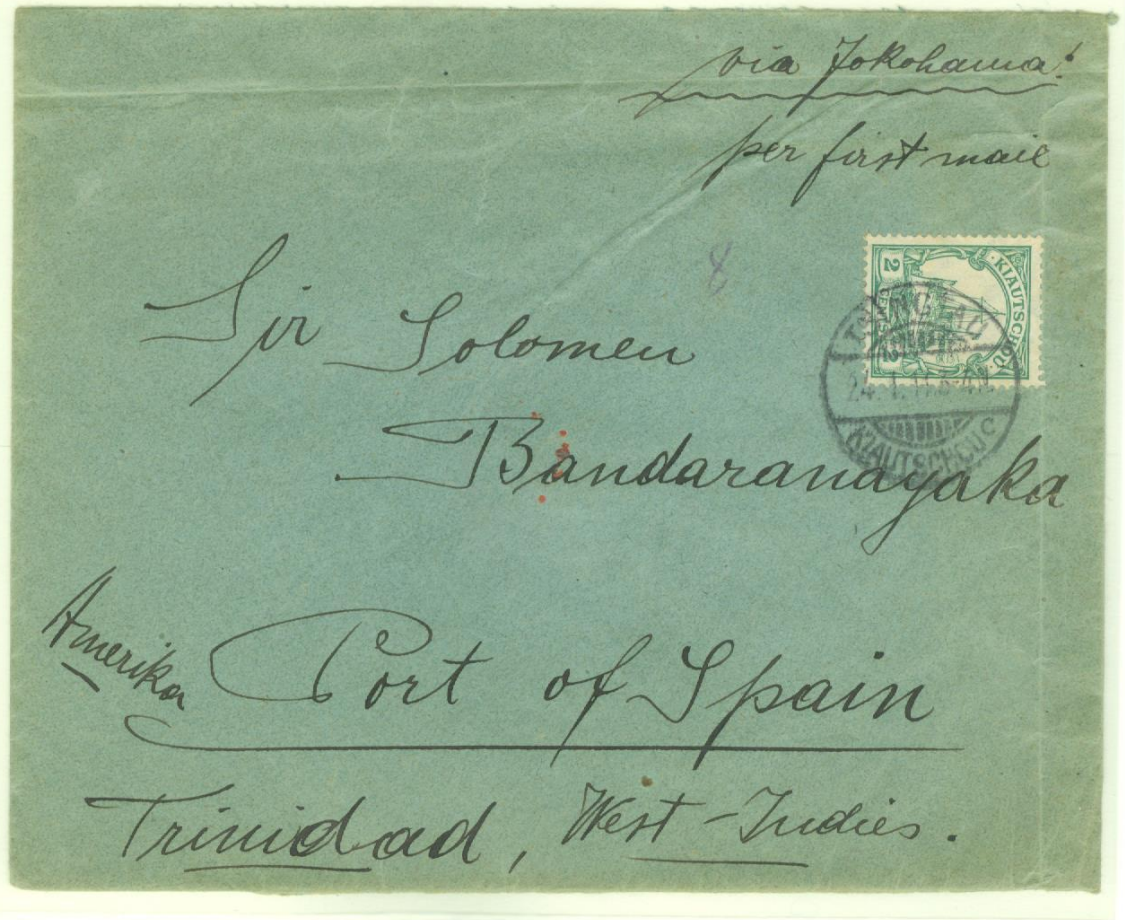 via Yokohama!
per first mail
8
KIAUTSCHOU
2 2
TSINGTAU
KIAUTSCHOU
C
Sir Solomen
Bandaranayaka
Amerika
Port of Spain
Trinidad, West-Indies.